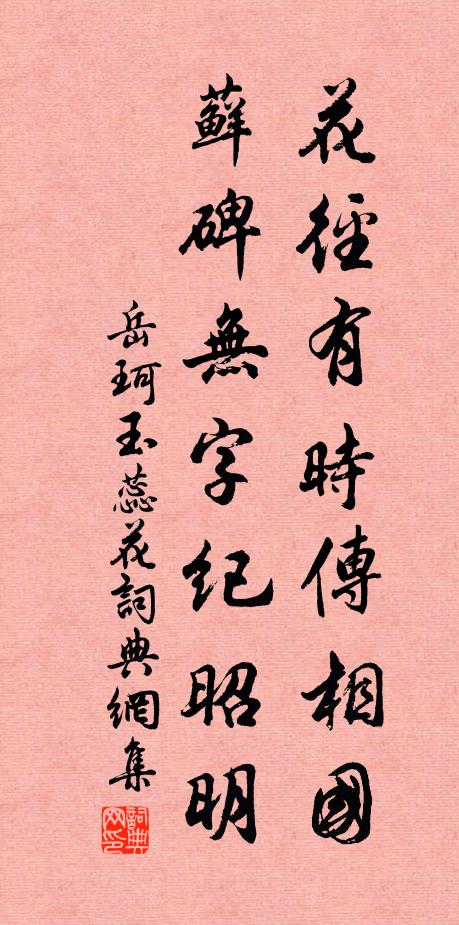 花徑有時傳相國
蘚碑無字紀昭明
岳珂玉蕊花詞典網集
詞典网印